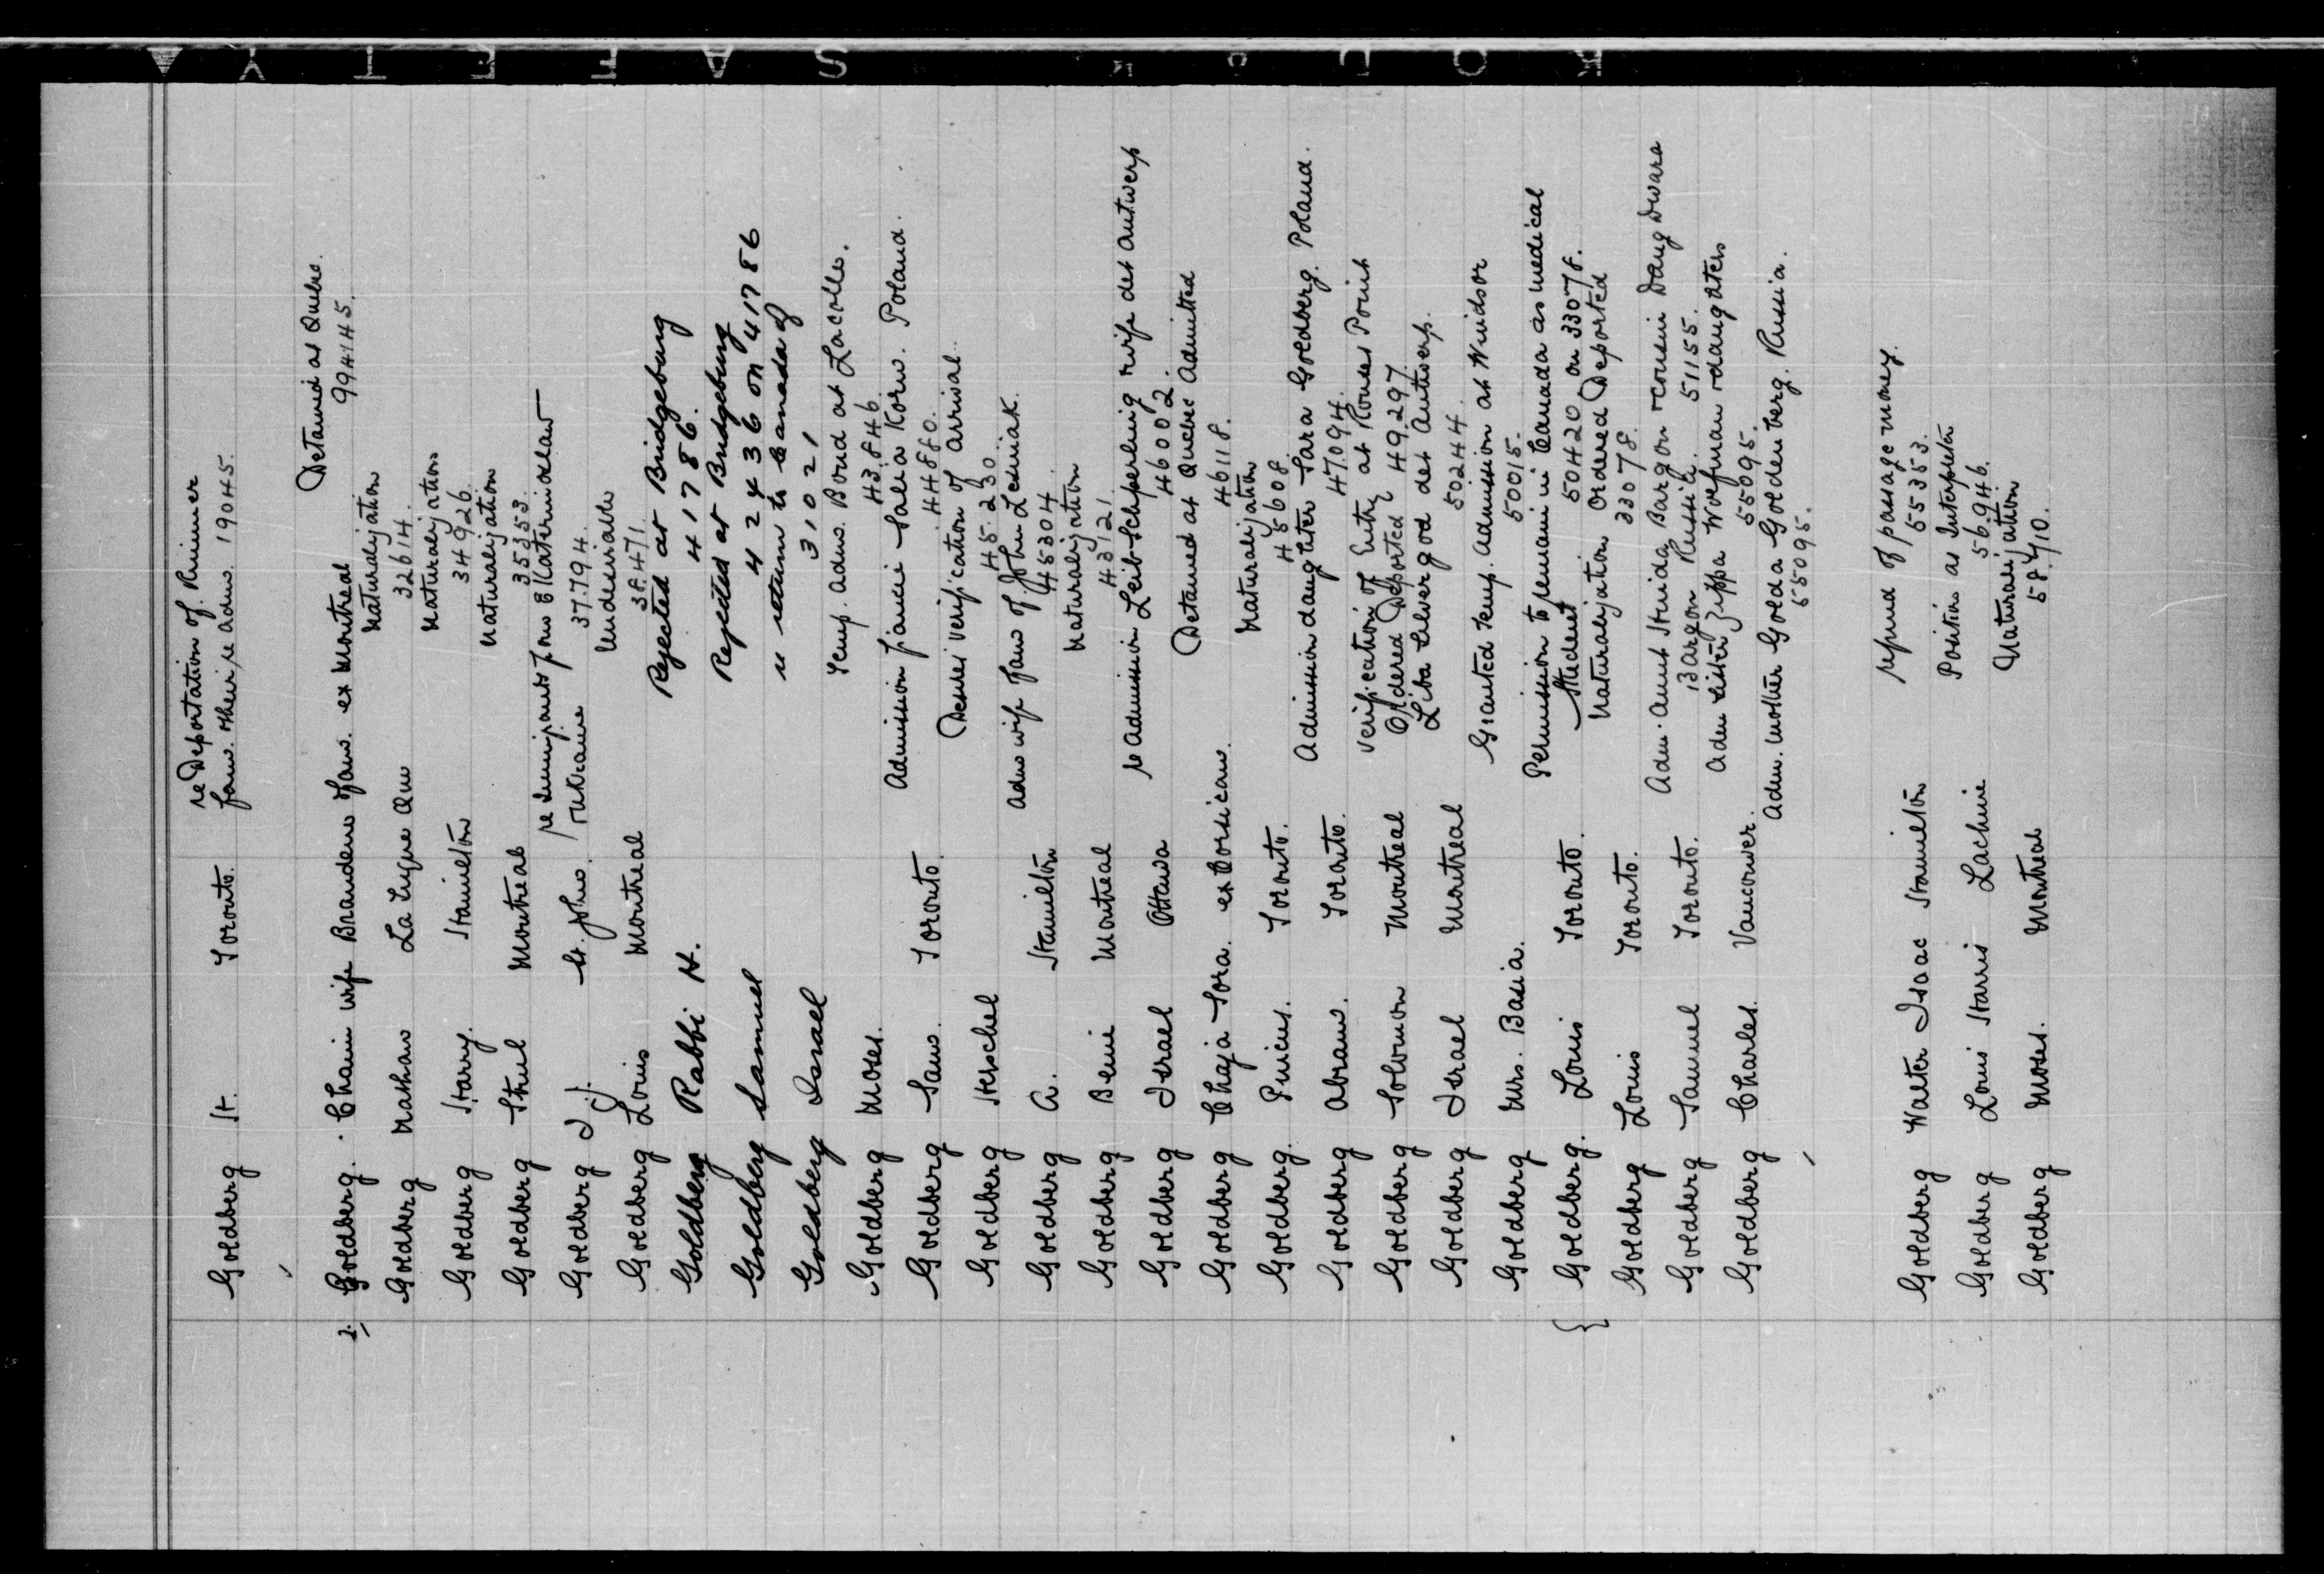 SAFETY
KODAK
re Deportation of
Goldberg H. Toronto. fam. re adm. 19045.
Detained at Quebec.
2. Goldberg. Chaim wife fam. ex Montreal 994145.
Naturalization
Goldberg Nathan 32614.
Naturalization
Goldberg Harry. Hamilton 34926.
Naturalization
Goldberg Montreal 35353.
re immigrants from
Goldberg I. J. St. John. 37794.
Undesirable
Goldberg Louis Montreal 38471.
Rejected at Bridgeburg
Goldberg Rabbi H. 41786.
Rejected at Bridgeburg
Goldberg Samuel 42436 on 41786
re return to Canada of
Goldberg Israel 31021
Temp. adm. Bond at Lacolle.
Goldberg Moses. 43846.
Admission fiancee Salka Korn. Poland.
Goldberg Sam. Toronto. 44880.
Desires verification of arrival.
Goldberg Herschel 45230
adm wife fam of John
Goldberg A. Hamilton 45304
Naturalization
Goldberg Montreal 43121.
re admission Leib Schperling wife det Antwerp
Goldberg Israel Ottawa 46002.
Detained at Quebec Admitted
Goldberg Chaja Sora. ex Corsican. 46118.
Naturalization
Goldberg. Pincus. Toronto. 45608.
Admission daughter Sara Goldberg. Poland.
Goldberg Abram. Toronto. 47094.
Verification of Entry at Rouses Point
Goldberg Solomon Montreal Ordered Deported 49297
Liba det Antwerp.
Goldberg Israel Montreal 50244.
Granted temp. admission at Windsor
Goldberg Mrs. Basia. 50015.
Permission to remain in Canada as medical
Goldberg. Louis Toronto. Student 50420 on 33078.
Naturalization Ordered Deported
Goldberg Louis Toronto. 33078.
Adm. aunt Bargon cousin
Goldberg Samuel Toronto. Bargon Russia. 51155.
Adm sister Wolfman daughters
Goldberg Charles. Vancouver. 55095.
Adm. mother Golda Goldenberg. Russia.
55095.
refund of passage money.
Goldberg Walter Isaac Hamilton 55353.
Position as Interpreter
Goldberg Louis Harris Lachine 56946.
Naturalization
Goldberg Moses. Montreal